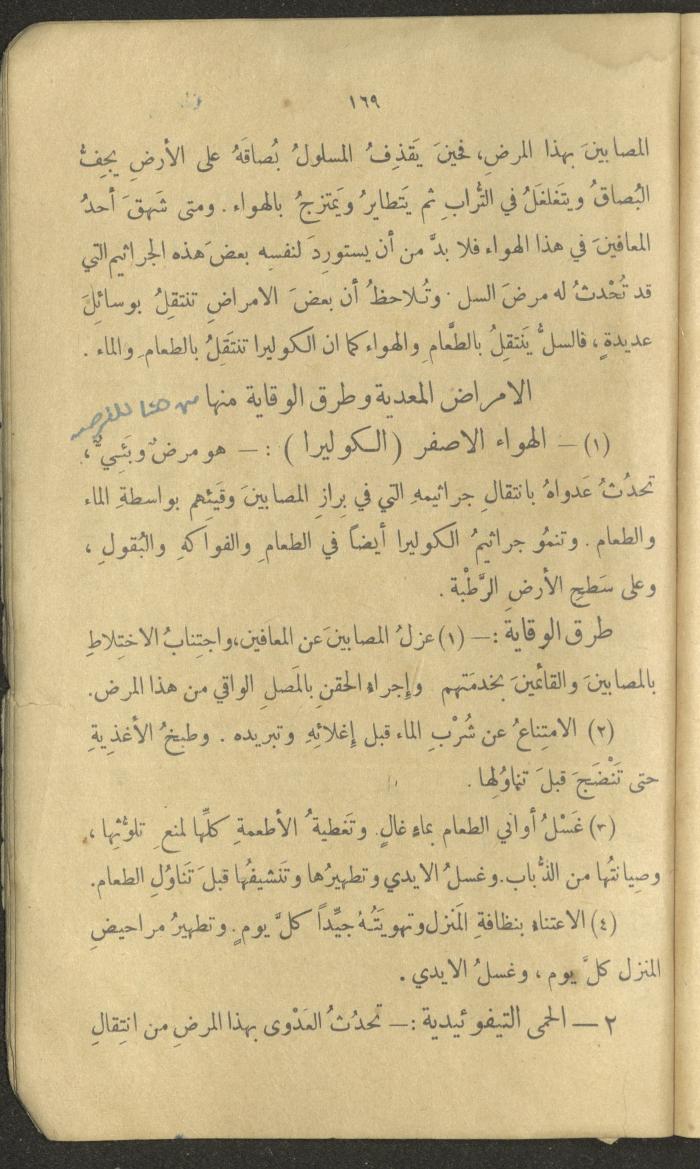 ١٦٩
المصابينَ بهذا المرضِ، فحينَ يَقذِفُ المسلولُ بُصاقَهُ على الأرضِ يجِفُّ
البُصاقُ ويتَغلغَلُ في التُّرابِ ثم يَتطايرُ ويَمتزجُ بالهواء . ومتى شَهقَ أحدُ
المعافينَ في هذا الهواء فلا بدَّ من أن يستورِدَ لنفسِه بعضَ هذه الجراثيمِ التي
قد تُحْدثُ له مرضَ السل . وتُلاحظُ أن بعضَ الامراضِ تنتقِلُ بوسائِلَ
عديدةٍ ، فالسلُّ يَنتقِلُ بالطَّعامِ والهواء كما ان الكوليرا تنتَقِلُ بالطعامِ والماء .
الامراض المعدية وطرق الوقاية منها من هنا للفرصه
(١) – الهواء الاصفر ( الكوليرا ) : – هو مرضٌ وبَئيٌّ ،
تحدُثُ عَدواهُ بانتقالِ جراثيمهِ التي في بِرازِ المصابينَ وقَيئِهم بواسطةِ الماء
والطعام . وتنمُو جراثيمُ الكوليرا أيضاً في الطعامِ والفواكهِ والبُقولِ ،
وعلى سَطحِ الأرضِ الرَّطْبة .
طرق الوقاية : – (١) عزلُ المصابينَ عن المعافين، واجتِنابُ الاختِلاطِ
بالمصابينَ والقائمينَ بخدمَتهم وإِجراء الحقنِ بالمَصلِ الواقي من هذا المرض.
(٢) الامتِناعُ عن شُرْبِ الماء قبل إِغلائِهِ وتبريده . وطبخُ الأغذِيةِ
حتى تَنْضَجَ قبلَ تناوُلِها .
(٣) غَسْلُ أواني الطعام بماءٍ غالٍ. وتَغطيةُ الأطعمةِ كلِّها لمنعِ تلوُّثِها ،
وصِيانتُها من الذُّباب. وغسلُ الايدي وتطهيرُها وتَنشيفُها قبلَ تَناوُلِ الطعام.
(٤) الاعتناء بنظافةِ المَنزلِ وتهويَتُهُ جيِّداً كلَّ يومٍ. وتطهيرُ مراحيضِ
المنزل كلَّ يوم ، وغسلُ الايدي .
٢ – الحمى التيفوئيدية : – تحدُثُ العَدْوى بهذا المرضِ من انتِقالِ